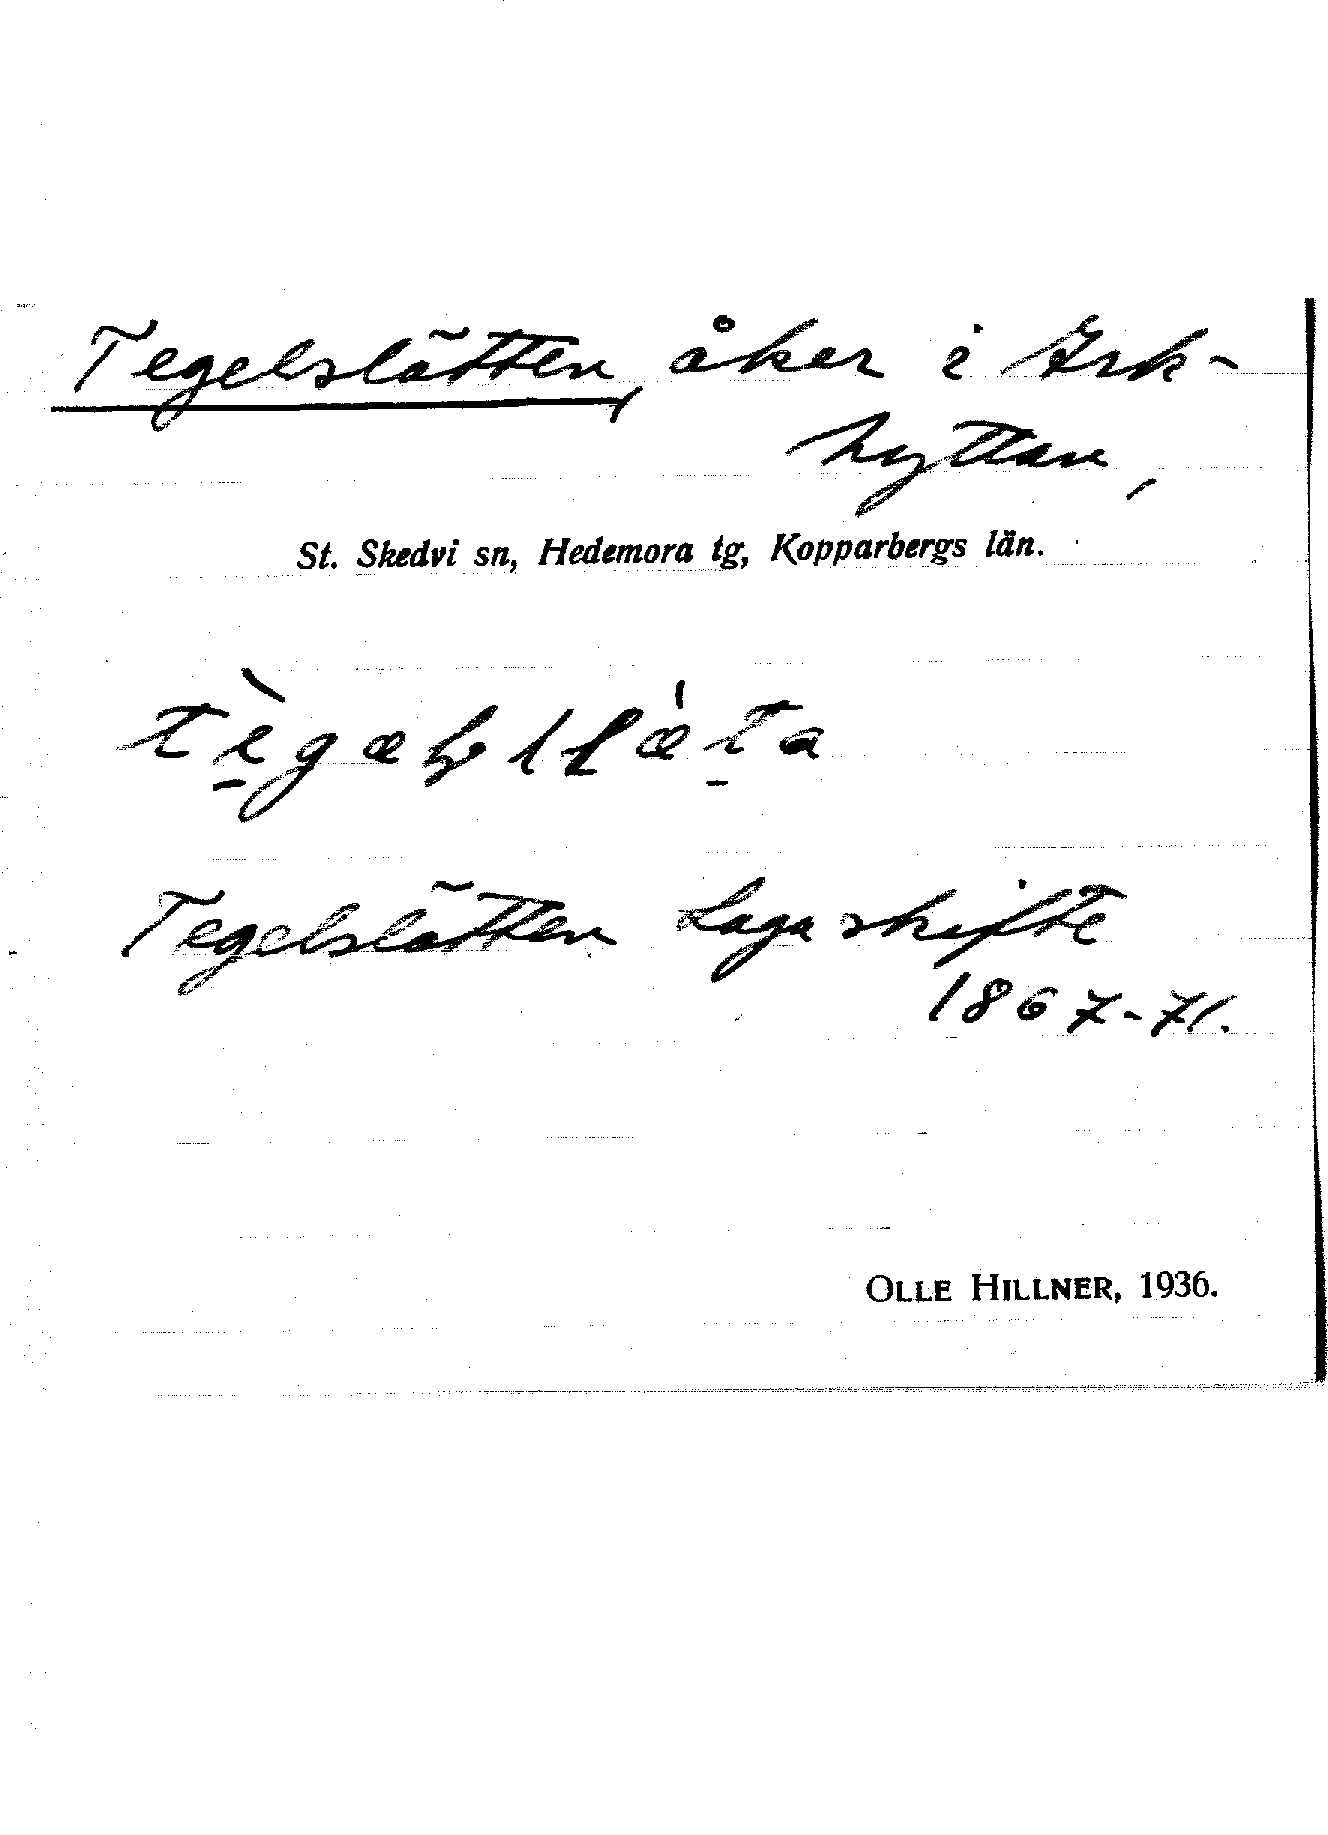 Tegelslätten, åker i Yrk-
hyttan,
St. Skedvi sn, Hedemora tg, Kopparbergs län.
Tegelslätten Lagaskifte
1867-71.
OLLE HILLNER, 1936.